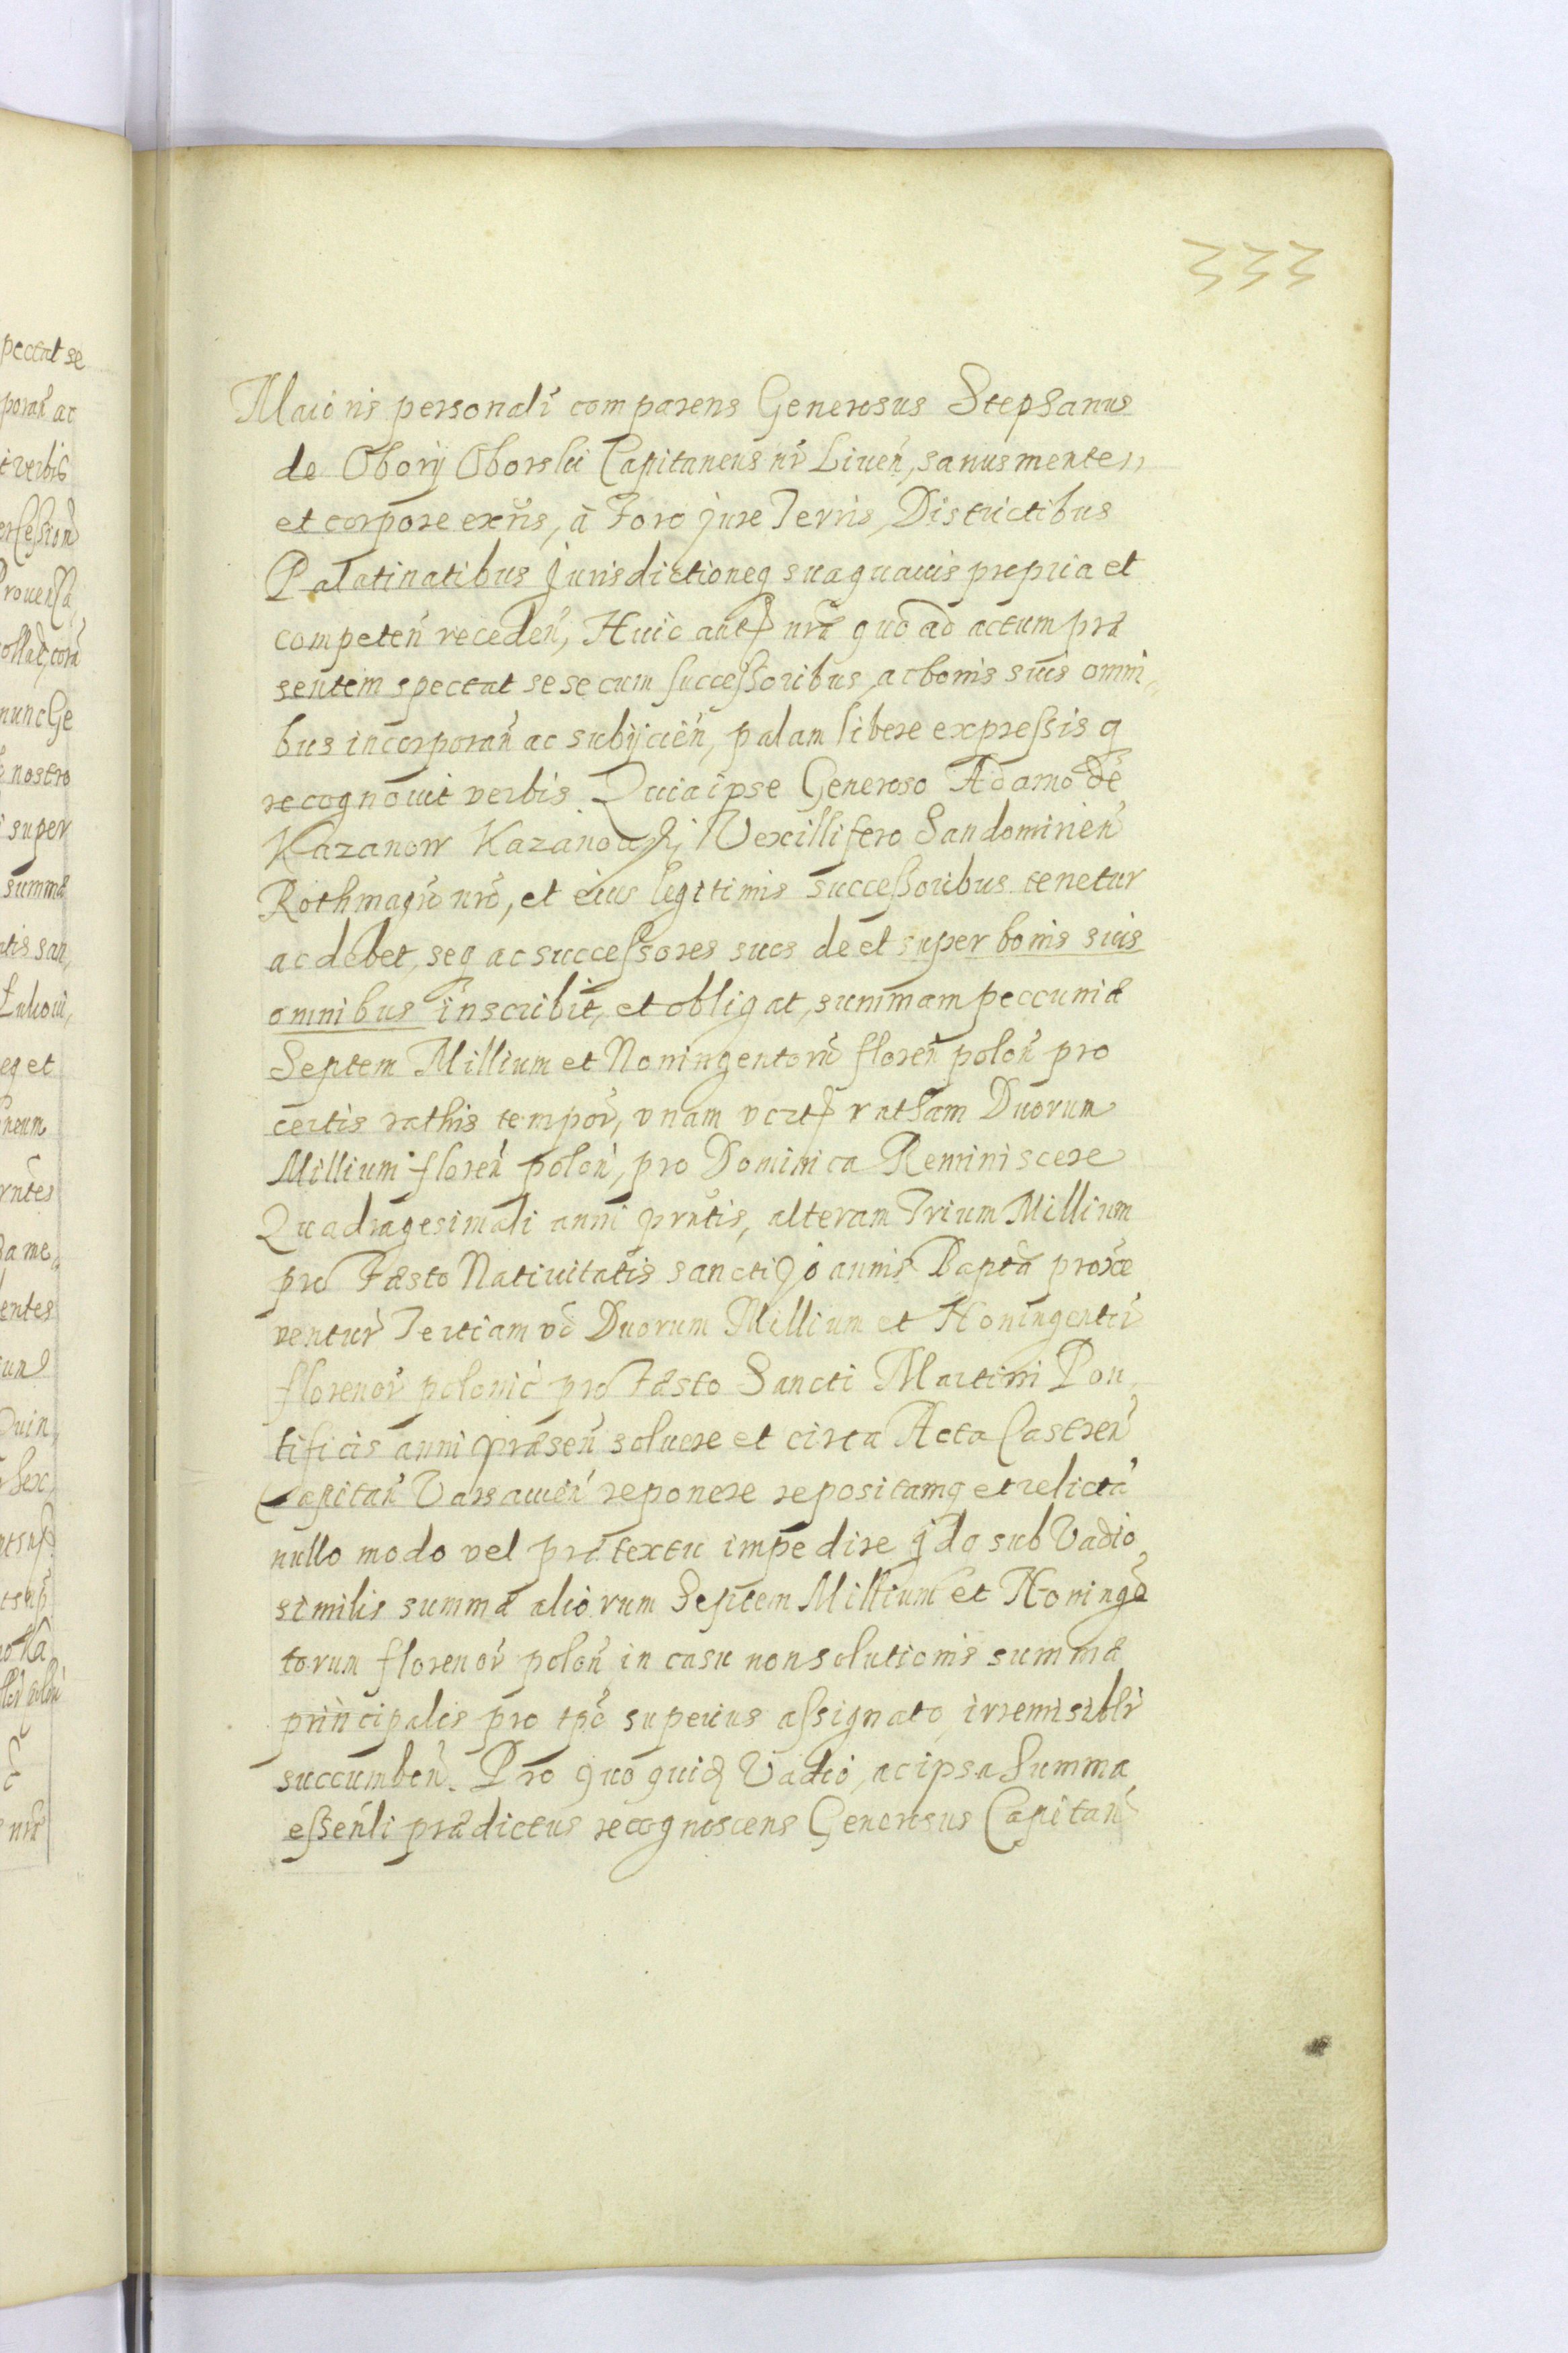 333
Maioris personalr̃ comparens Generosus Stephanus
de Obory Oborski Capitaneus nr̃ Liuen̄, sanus mente
et corpore exñs, à Foro jure Terris, Districtibus
Palatinatibus jurisdictioneq̃ sua quauis propria et
competen̄ receden̄, Huic aut̃ nræ quo ad actum præ
sentem spectat sese cum successoribus, ac bonis suis omni
bus incorporan̄ ac subijcien̄, palam libere expressis q̃
recognouit verbis. Quia ipse Generoso Adamo de
Kazanow Kazanowski Vexillifero Sandomirien̄
Rothmagrõ nrõ, et eius legitimis successoribus tenetur
ac debet, seq̃ ac successores suos de et super bonis suis
omnibus inscribit, et obligat, summam peccuniæ
Septem Millium et Noningentorũ floren̄ polon̄ pro
certis rathis tempor̃, vnam vertꝭ ratham Duorum
Millium floren̄ polon̄, pro Dominica Reminiscere
Quadragesimali anni pr̃ntis, alteram Trium Millium
pro Fæsto Natiuitatis sancti Joannis Baptæ proxe
ventur̃ Tertiam võ Duorum Millium et Noningentor̃
florenor̃ polonic̃ pro Fæsto Sancti Martini Pon
tificis anni præsen̄ soluere et circa Acta Castren̄
Capitan̄ Varsauien̄ reponere repositamq̃ et relictã
nullo modo vel prætextu impedire jdq̃ sub Vadio
similis summæ aliorum Septem Millium et Noninge
torum florenor̃ polon̄ in casu non solutionis summæ
principalis pro tpẽ superius assignato, irremisiblr̃
succumben̄. Pro quo quid̃ Vadio, ac ipsa Summa
essenli prædictus recognoscens Generosus Capitan̄